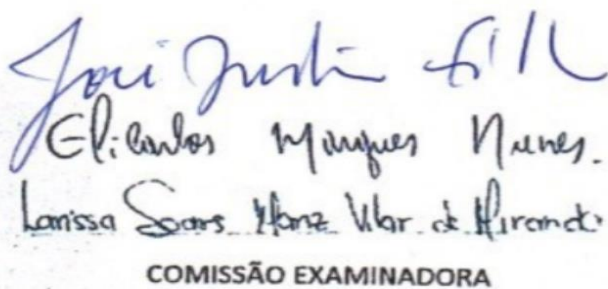 José Justin Filh
Elicarlos Marques Nunes.
Larissa Soares Mariz Vilar de Miranda
COMISSÃO EXAMINADORA